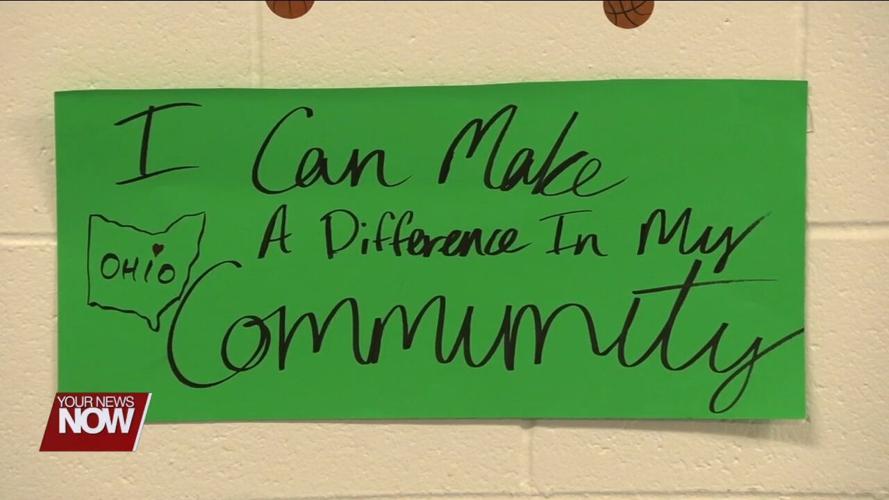 I Can Make
A Difference In My
OHIO
Community
YOUR NEWS
NOW